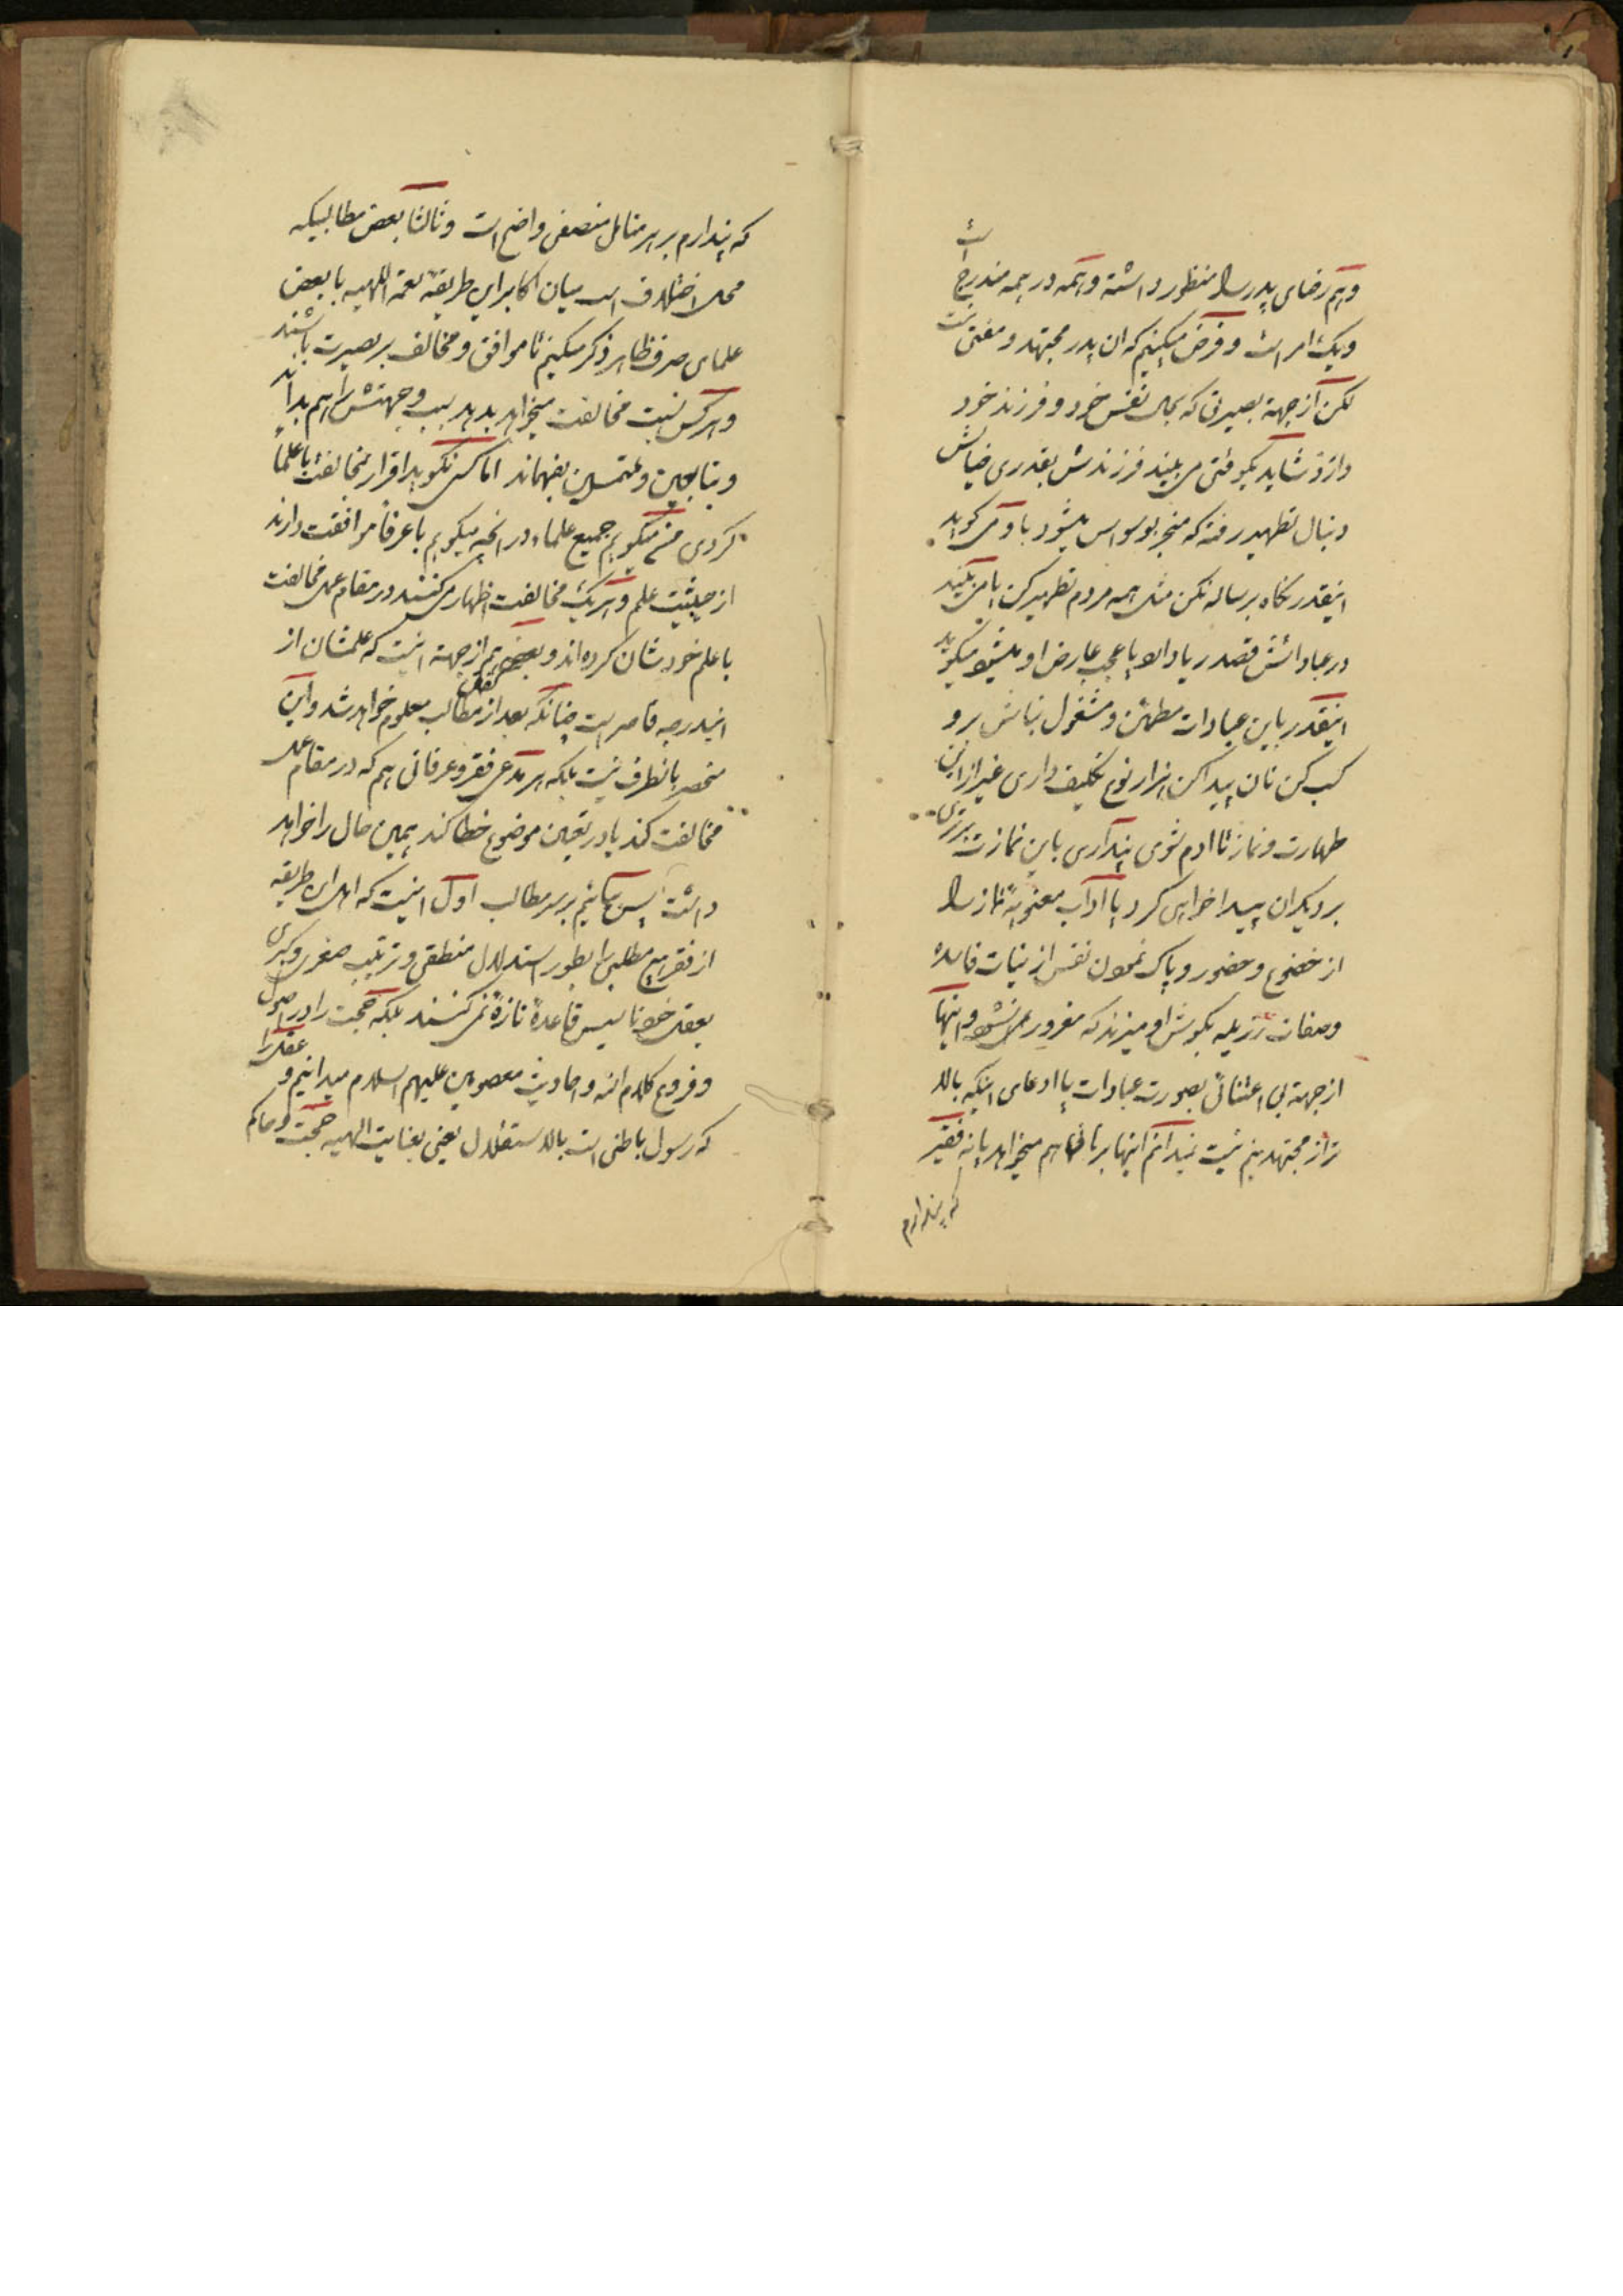 و هم رضای پدر را منظور داشته و همه در همه مندرج است
و یک امر است و فرض میکنیم که ان پدر مجتهد و مفتی نیست
لکن از جهة بصیرتی که بحال نفس خود و فرزند خود
دارد شاید یکوقتی می بیند فرزندش بقدری خیالش
دنبال تطهیر رفته که منجر بوسواس میشود باو می کوید
اینقدر نکاه برساله نکن مثل همه مردم تطهیر کن یا می بیند
در عباداتش قصد ریا دارد یا عجب عارض او میشود میکوید
اینقدر باین عبادات مطمئن و مشغول نباش برو
کسب کن نان پیدا کن هزار نوع تکلیف داری غیر از این
طهارت و نماز تا ادم شوی پنداری باین نمازت برتری
بر دیکران پیدا خواهی کرد یا آداب معنویهٔ نماز را
از خضوع و حضور و پاک نمودن نفس از نیات فاسده
و صفات رزیله بکوش او میزند که مغرور عملش نشود و اینها
از جهة بی اعتنائی بصورت عبادات یا ادعای اینکه بالا
تر از مجتهدینم نیست نمیدانم اینها برهانی هم میخواهد یا نه فقیر
که پندارم
که پندارم بر هر متامل منصفی واضح است و ثالثا بعض مطالبیکه
محل اختلاف است میان اکابر این طریقهٔ نعمة اللهیه با بعض
علمای صرف ظاهر ذکر میکنیم تا موافق و مخالف بر بصیرت باشند
و هر کس نسبت مخالفت میخواهد بدهد سبب و جهتش را هم بداند
و بتابعین و ملتمسین بفهماند اما کسی نکوید اقرار بمخالفت با علما
کردی من میکویم جمیع علماء در انچه میکویم با عرفا موافقت دارند
از حیثیت علم و هر یک مخالفت اظهار می کنند در مقام عمل مخالفت
با علم خودشان کرده اند و بعضی هم از جهة انیست که علمشان از
اندرجه قاصر است چنانکه بعد از نقل مطالب معلوم خواهد شد و این
منحصر بانطرف نیست بلکه هر مدعی فقر و عرفانی هم که در مقام عمل
مخالفت کند یا در تعیین موضوع خطا کند همین حال را خواهد
داشت پس بیائیم بر سر مطالب اول اینست که اهل این طریقه
از فقر هیچ مطلبی را بطور استدلال منطقی و ترتیب صغری و کبری
بعقل خود تاسیس قاعدهٔ تازهٔ نمی کنند بلکه حجت را در اصول
و فروع کلام الله و احادیث معصومین علیهم السلام میدانیم و عقل را
که رسول باطنی است بالاستقلال یعنی بعنایت الهیه حجت و حاکم